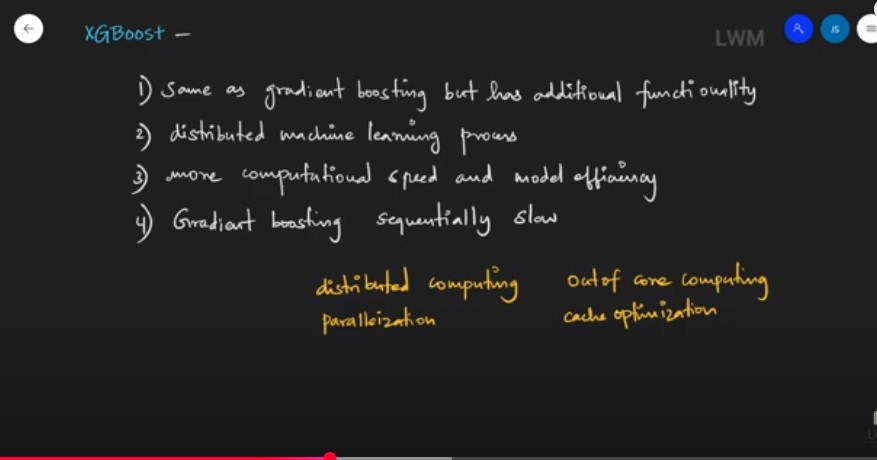 XGBoost -
LWM
JS
1) Same as gradient boosting but has additional functionality
2) distributed machine learning process
3) more computational speed and model efficiency
4) Gradient boosting sequentially slow
distributed computing out of core computing
paralleization cache optimization